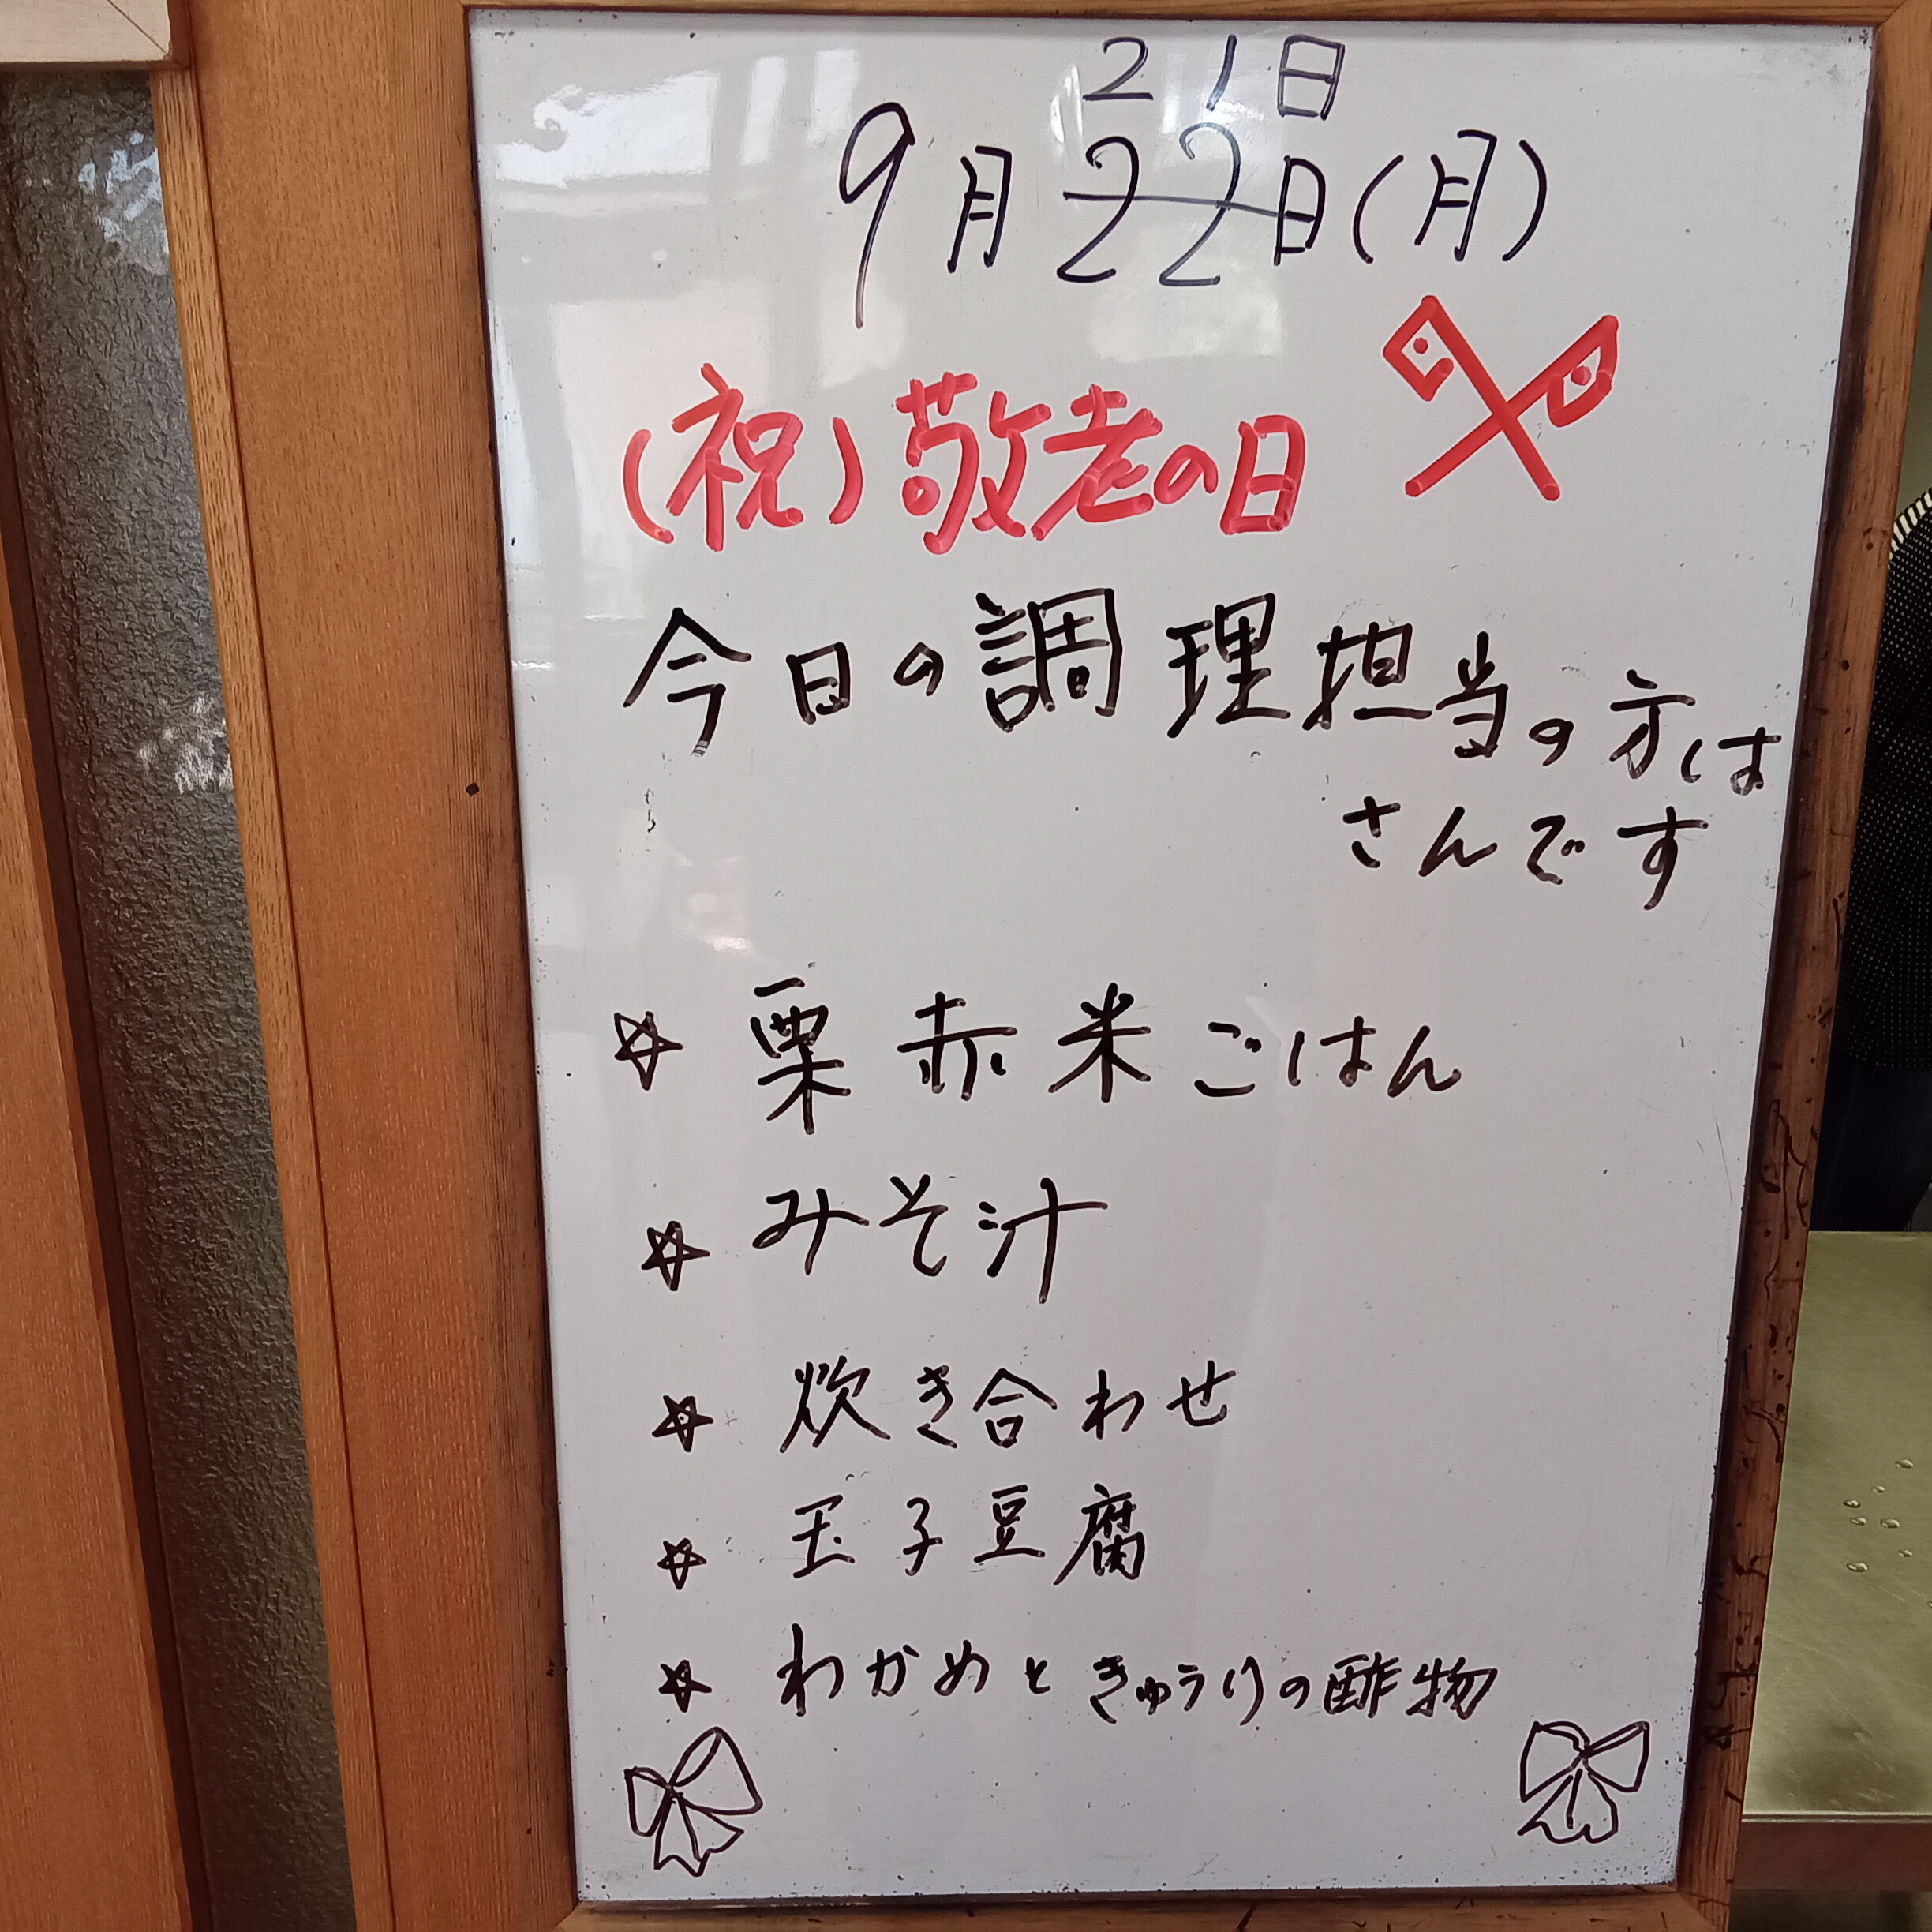 21日
9月22日(月)
(祝)敬老の日
今日の調理担当の方は
さんです
☆ 栗赤米ごはん
☆ みそ汁
☆ 炊き合わせ
☆ 玉子豆腐
☆ わかめときゅうりの酢物